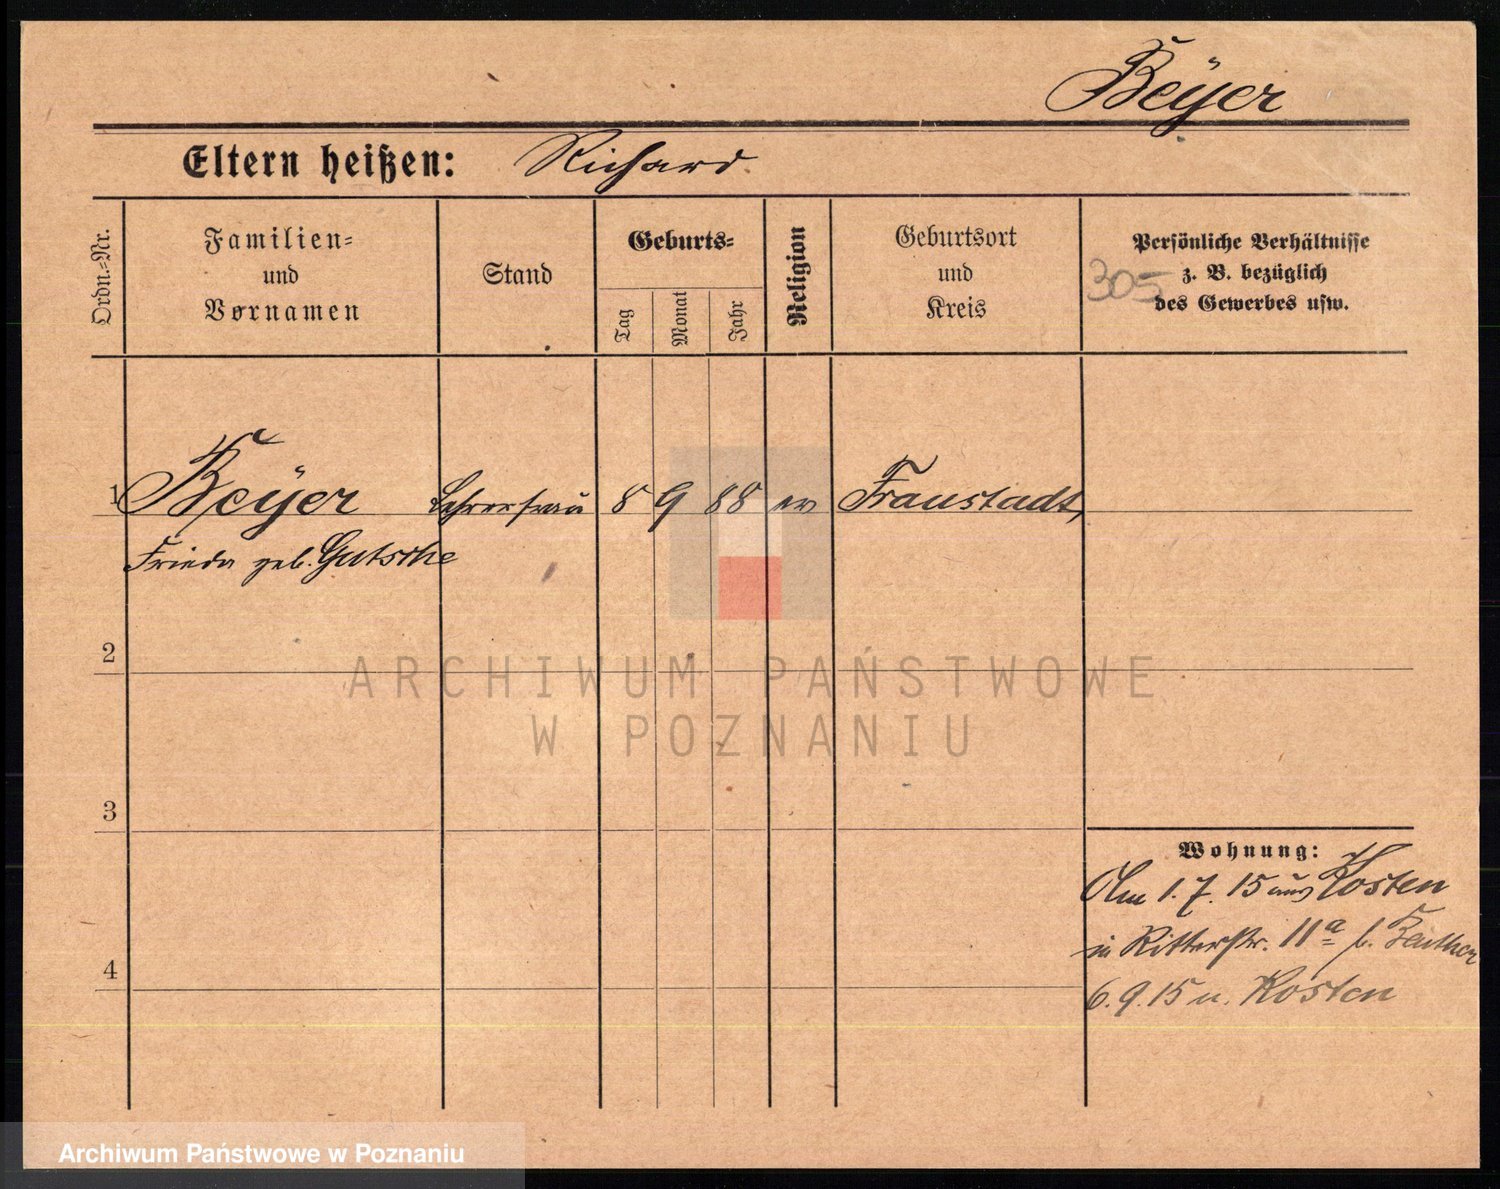 Beÿer
Eltern heißen: Richard.
Ordn.-Nr.
Familien-
und
Vornamen
Stand
Geburts-
Tag
Monat
Jahr
Religion
Geburtsort
und
Kreis
Persönliche Verhältnisse
z. B. bezüglich
des Gewerbes usw.
305
1 Beÿer Lehrerfrau 8 9 88 ev Fraustadt
Frieda geb. Gutsche
2
3
4
Wohnung:
Am 1.7.15 aus Kosten
in Ritterstr. 11a b.
6.9.15 n. Kosten
ARCHIWUM PAŃSTWOWE
W POZNANIU
Archiwum Państwowe w Poznaniu